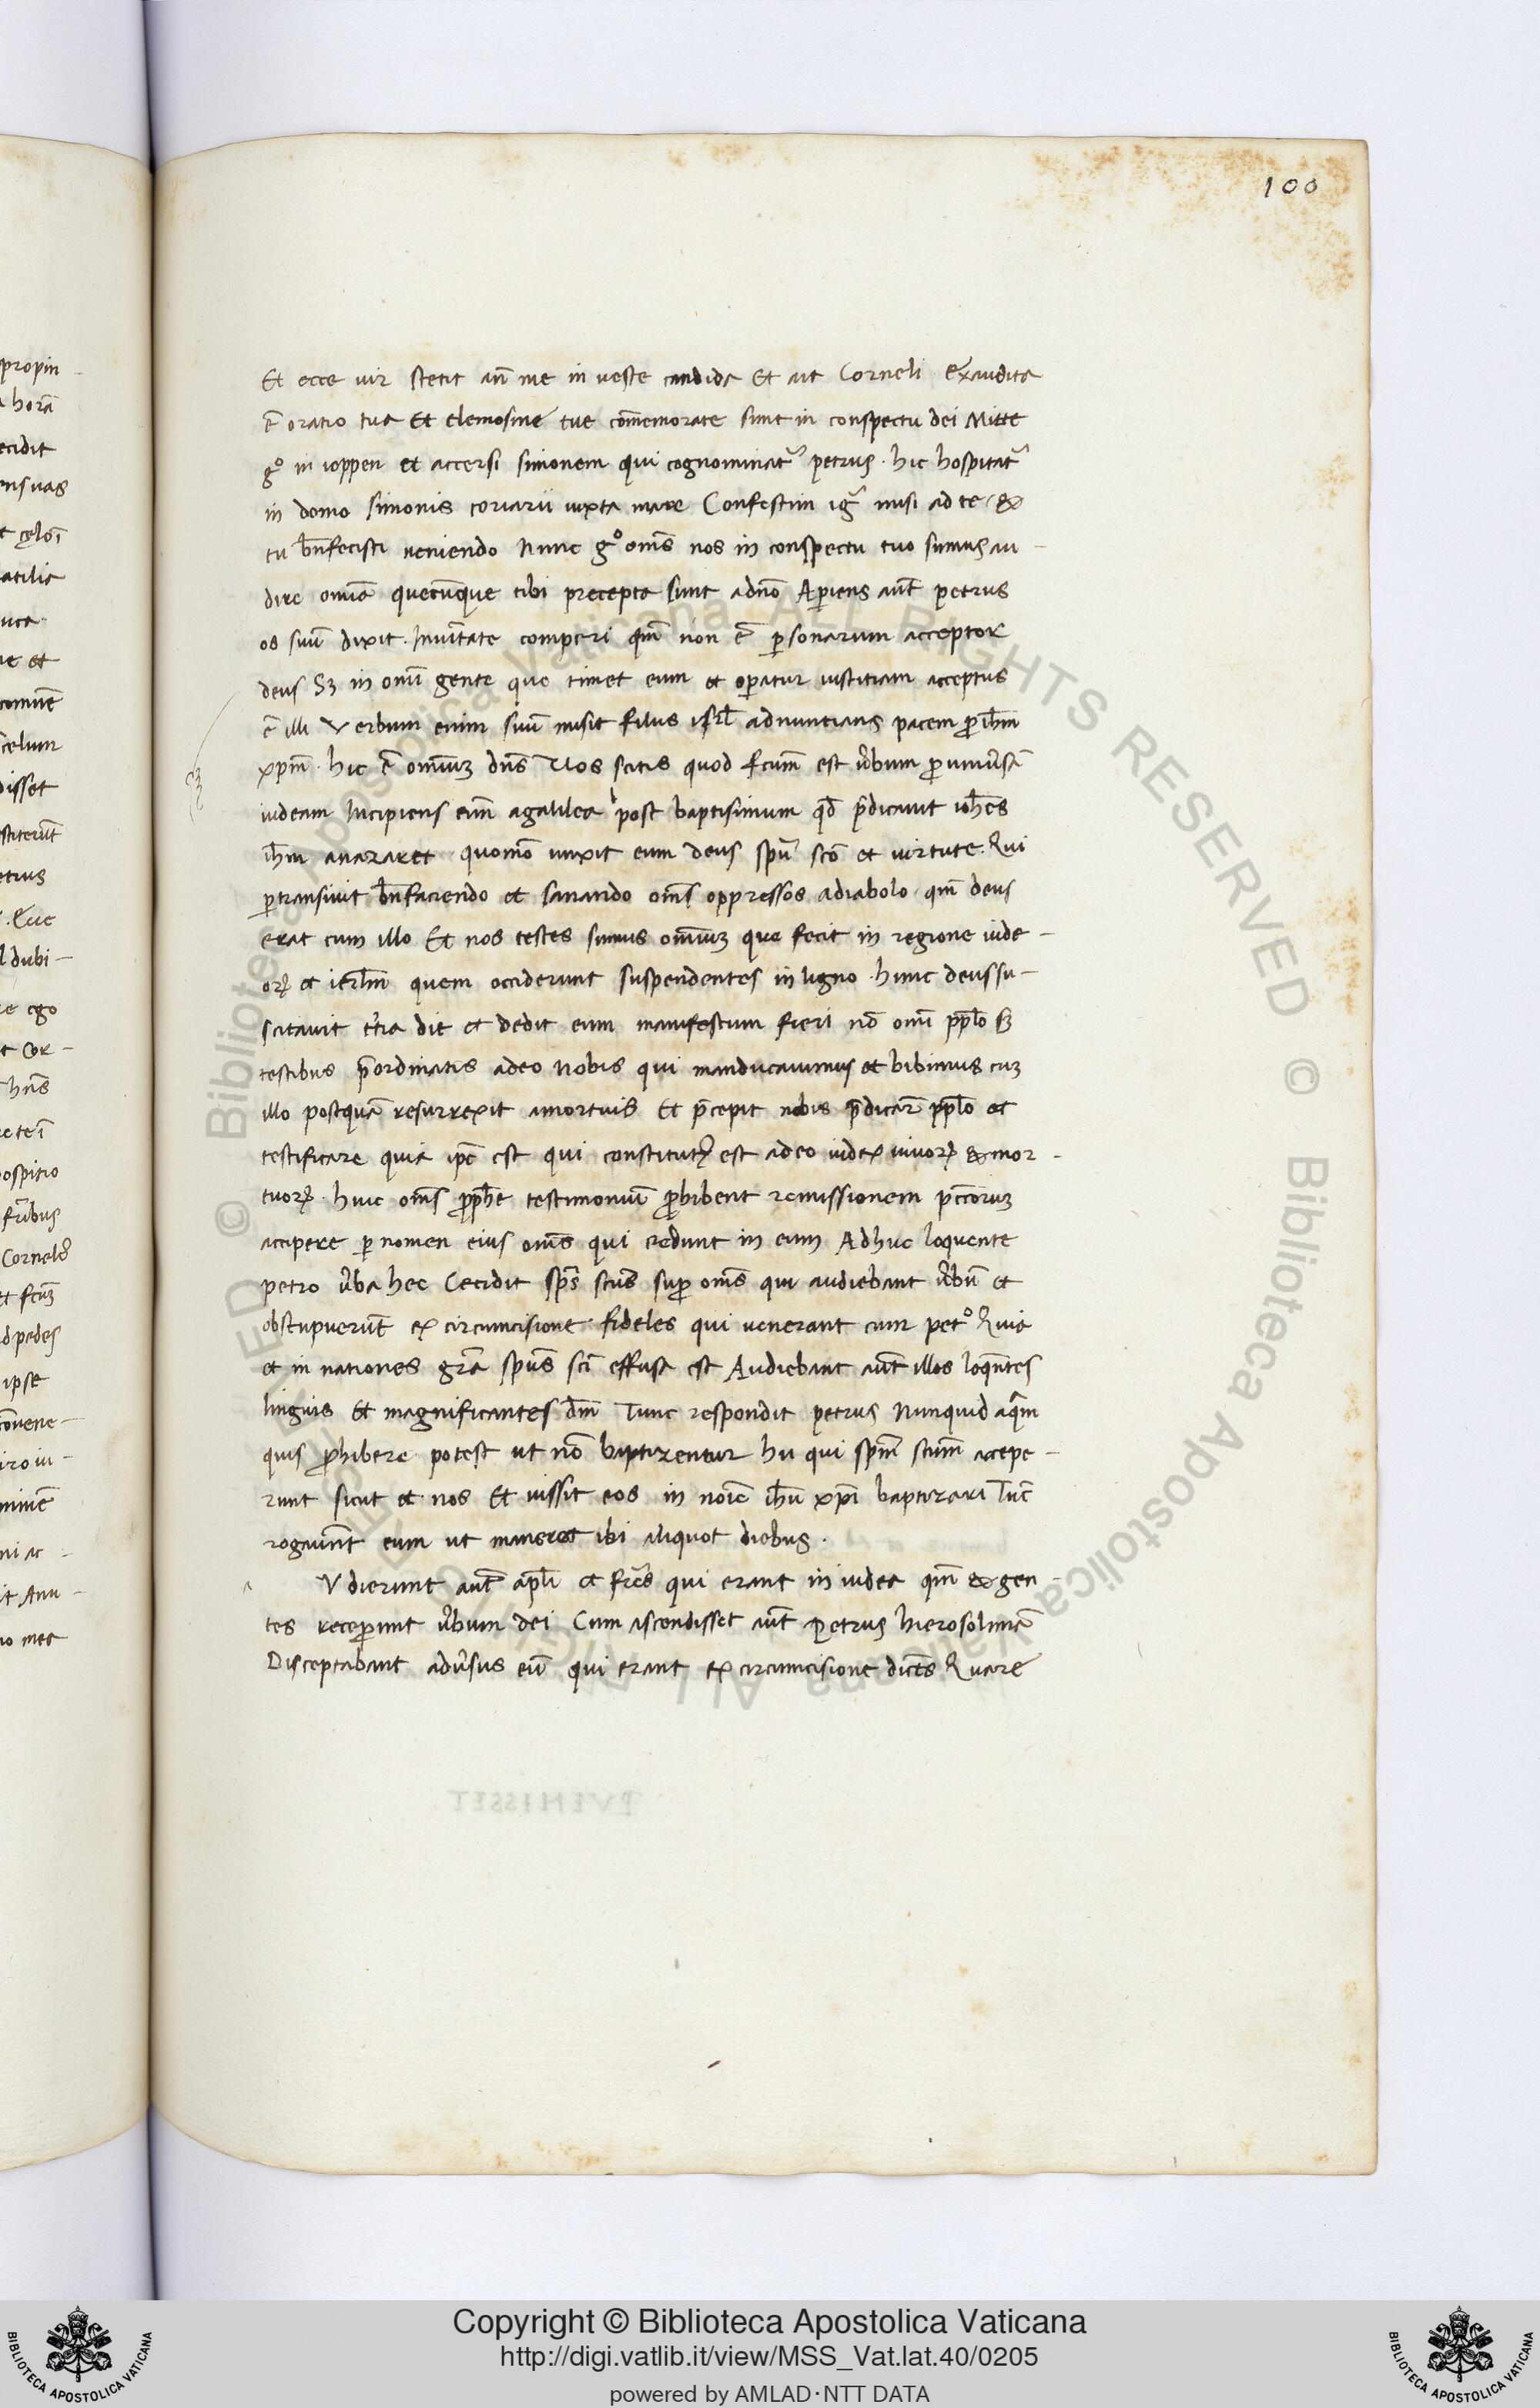 100
propin
horā
ecidit
ensuas
t cęloꝫ
atilia
uca
ne et
comuē
celum
disset
stiterūt
etrus
Que
dubi
re ego
t Cor
hn̄s
re te ī
ospitio
fr̄ibus
Corneli⁹
et fcūꝫ
d pedes
ipse
cōuene
iro iu
minē
ni ac
it Anu
io mea
Et ecce uir stetit an̄ me in ueste candida Et ait Corneli Exaudita
ē oratio tua Et elemosine tue cōmemorate sunt in conspectu dei Mitte
g° in ioppen et accersi simonem qui cognominat᷑ petrus . hic hospitat᷑
in domo simonis coriarii iuxta mare Confestim ig᷑ misi ad te &
tu bn̄fecisti ueniendo Nunc g° om̄s nos in conspectu tuo sumus au
dire omīa quecūque tibi precepta sunt adn̄o Aꝑiens aūt petrus
os suū dixit . Inuītate comperi qm̄ non ē ꝑsonarum acceptor
deus Sꝫ in omī gente que timet eum et oꝑatur iustitiam acceptus
ē illi Verbum enim suū misit filus isrl̄ adnuntians pacem ꝓ ih̄m
xpm̄ . hic ē omīuꝫ dn̄s Vos scitis quod fcūm est ūbum ꝑ uniūsā
iudeam Incipiens eīm agalilea post baptisimum qd̄ p̄dicauit ioh̄es
ih̄m anazaret quomō unxit eum deus spū scō et uirtute . Qui
ꝑtransiuit bn̄faciendo et sanando om̄s oppressos adiabolo qm̄ deus
erat cum illo Et nos testes sumus omīuꝫ que fecit in regione iude
oꝝ et ierlm̄ quem occiderunt suspendentes in ligno . hunc deus su
scitauit t̄cia die et dedit eum manifestum fieri nō omī pp̄lo sꝫ
testibus p̄ordinatis adeo Nobis qui manducauimus et bibimus cuꝫ
illo postquā resurrexit amortuis Et p̄cepit nobis p̄dicare pp̄lo et
testificare quia ip̄e est qui constitut⁹ est adeo iudex uiuoꝝ & mor
tuoꝝ . huic om̄s ꝓph̄e testimoniū ꝓhibent remissionem pc̄coruꝫ
accipere ꝑ nomen eius om̄s qui credunt in eum Adhuc loquente
petro ūba hec Cecidit sp̄s scūs suꝑ om̄s qui audiebant ūbū et
obstupuerūt ex circumcisione fideles qui uenerant cum pet° Quia
et in nationes gr̄a sp̄us scī effusa est Audiebant aūt illos loqn̄tes
linguis Et magnificantes dm̄ Tunc respondit petrus Nunquid aqam
quis ꝓhibere potest ut nō baptizentur hii qui spm̄ scūm accepe
runt sicut et nos Et iussit eos in noīe ih̄u xp̄i baptizari Tūc
rogauūnt eum ut maneret ibi aliquot diebus .
Vdierunt aūt apl̄i et frēs qui erant in iudea qm̄ & gen
tes receꝑunt ūbum dei Cum ascendisset aūt Petrus hierosolimā
Disceptabant adūsus eū qui erant ex circumcisione dicēs Quare
Copyright © Biblioteca Apostolica Vaticana
http://digi.vatlib.it/view/MSS_Vat.lat.40/0205
powered by AMLAD·NTT DATA
BIBLIOTECA APOSTOLICA VATICANA
BIBLIOTECA APOSTOLICA VATICANA